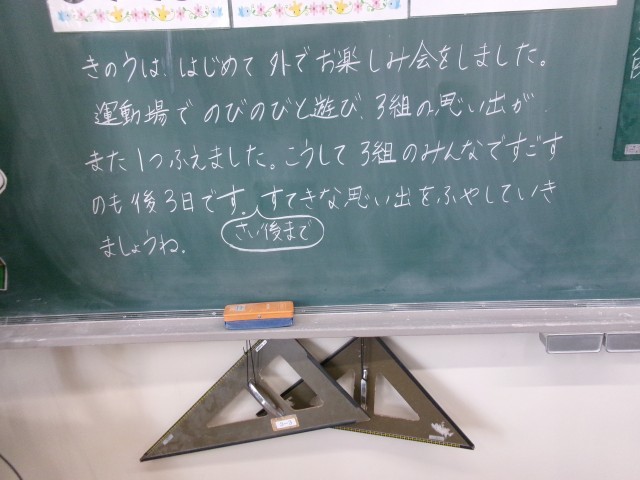 きのうは、はじめて外でお楽しみ会をしました。
運動場でのびのびと遊び、3組の思い出が
また1つふえました。こうして3組のみんなですごす
のも後3日です。すてきな思い出をふやしていき
さい後まで
ましょうね。